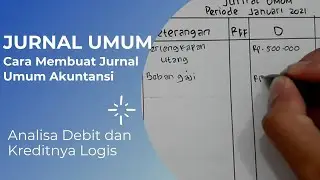 JURNAL UMUM
Cara Membuat Jurnal
Umum Akuntansi
Analisa Debit dan
Kreditnya Logis
Jurnal Umum
Periode Januari 2021
keterangan Ref D
Perlengkapan Rp. 500.000
utang
Beban gaji